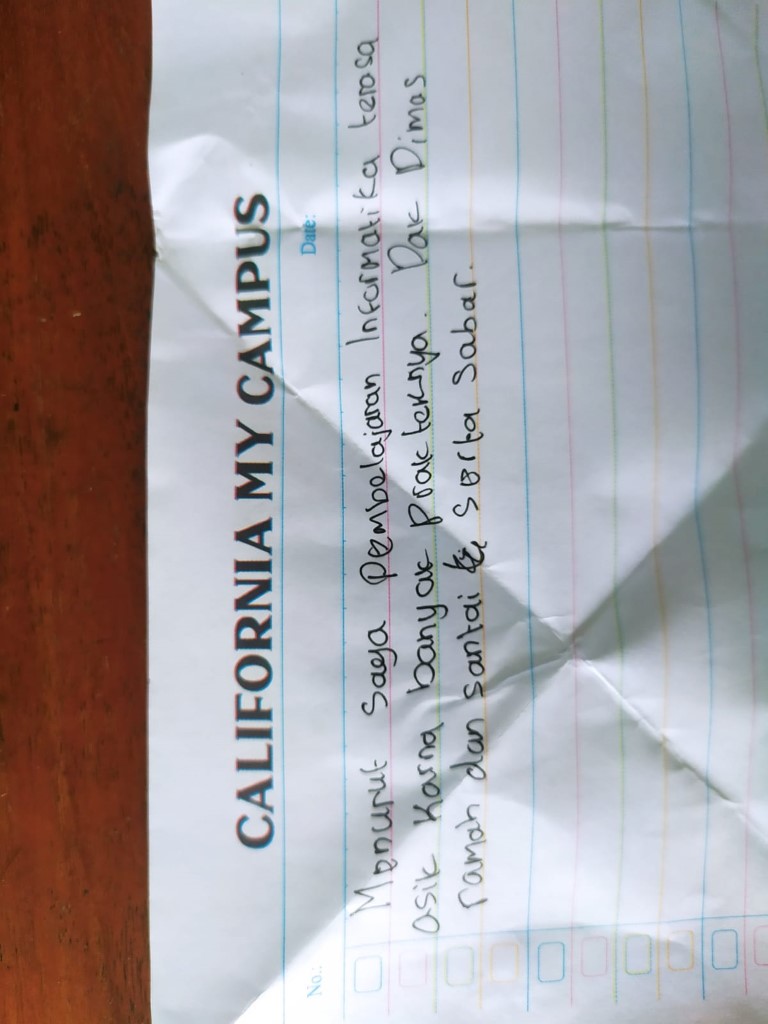 CALIFORNIA MY CAMPUS
No.: Date:
Menurut Saya pembelajaran Informatika terasa
asik Karna banyak prakteknya. Pak Dimas
ramah dan santai serta Sabar.